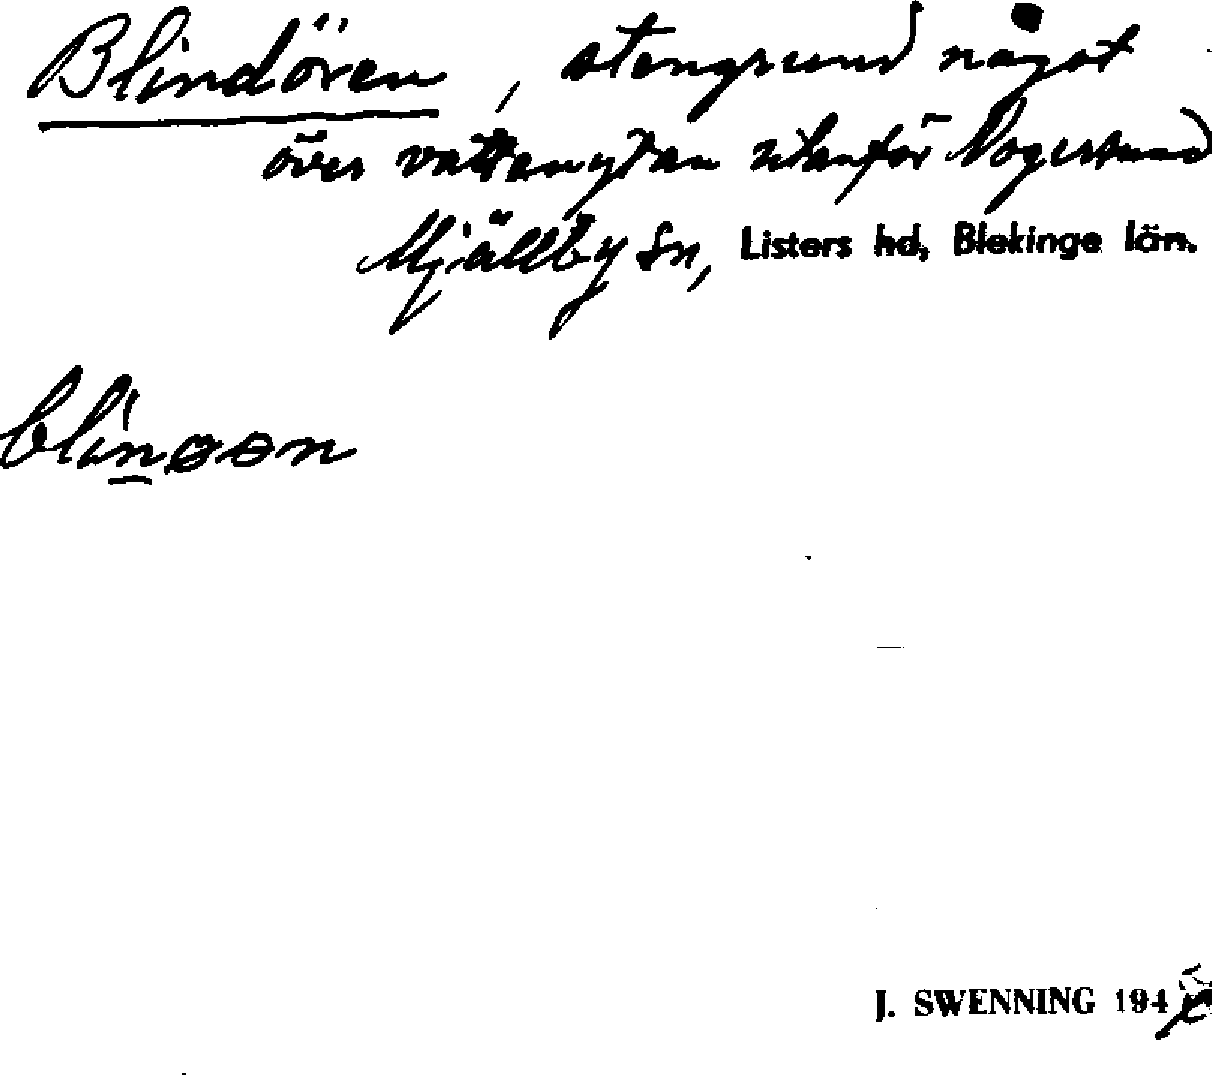 Blindören, stengrund något
över vattenytan utanför Nogersund
Mjällby sn, Listers hd, Blekinge län.
blinøøn
J. SWENNING 194